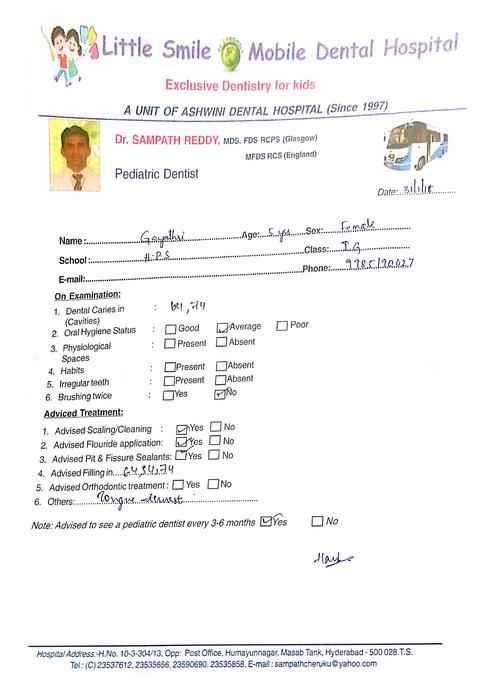 Little Smile Mobile Dental Hospital
Exclusive Dentistry for kids
A UNIT OF ASHWINI DENTAL HOSPITAL (Since 1997)
Dr. SAMPATH REDDY, MDS. FDS RCPS (Glasgow)
MFDS RCS (England)
Pediatric Dentist
Date:
Name: Gayathri Age: 5 yrs Sex: Female
School: H.P.S Class:
E-mail: Phone:
On Examination:
1. Dental Caries in : 64, 74
(Cavities)
2. Oral Hygiene Status : Good Average Poor
3. Physiological : Present Absent
Spaces
4. Habits : Present Absent
5. Irregular teeth : Present Absent
6. Brushing twice : Yes No
Adviced Treatment:
1. Advised Scaling/Cleaning : Yes No
2. Advised Flouride application: Yes No
3. Advised Pit & Fissure Sealants: Yes No
4. Advised Filling in
5. Advised Orthodontic treatment: Yes No
6. Others: Tongue thrust
Note: Advised to see a pediatric dentist every 3-6 months Yes No
Hospital Address:-H.No. 10-3-304/13, Opp: Post Office, Humayunnagar, Masab Tank, Hyderabad - 500 028.T.S.
Tel : (C) 23537612, 23535656, 23590690. 23535858, E-mail : sampathcheruku@yahoo.com